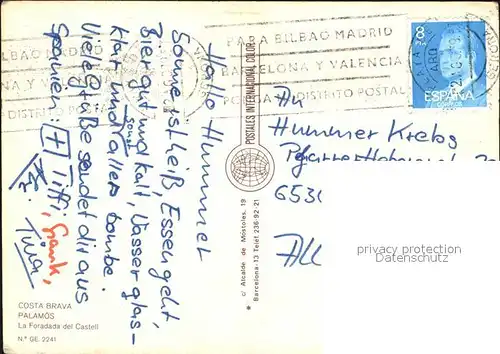 PARA BILBAO MADRID
BARCELONA Y VALENCIA
PONGA DISTRITO POSTAL
BILBAO MADRID
NA Y VALENCIA
DISTRITO POSTAL
8
PTA
ESPAÑA
CORREOS
Hallo Hummel
Sonne ist heiß, Essen geht,
Bier gut und kalt, Wasser glas-
klar und sonst alles bombe.
Viele Grüße sendet dir aus
Spanien:
Titti, Frank,
An
Hummer Krebs
6531
privacy protection
Datenschutz
POSTALES INTERNACIONAL COLOR
c/ Alcalde de Móstoles, 19
Barcelona-13 Teléf. 236-92-21
COSTA BRAVA
PALAMÓS
La Foradada del Castell
N.º GE. 2241